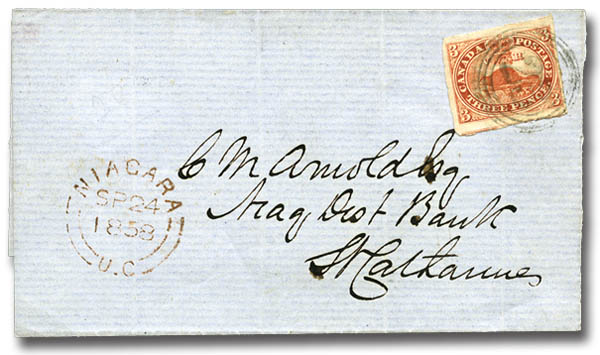 CANADA POSTAGE
THREE PENCE
3 3 3 3
C M Arnold Esq
Niag Dist Bank
St Catharines
NIAGARA
SP 24
1858
U.C